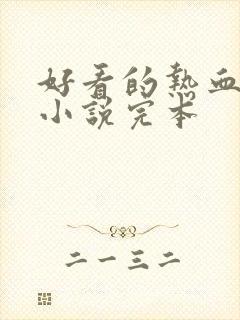 好看的热血
小说完本
二一三二